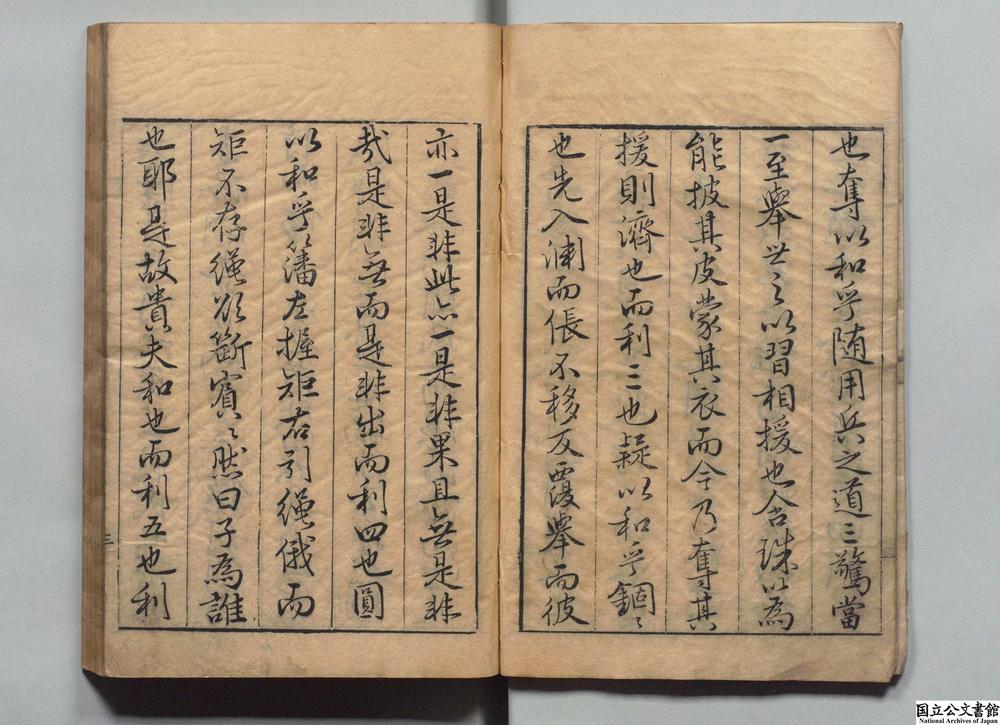 也奪以和乎随用兵之道三驚當
一至舉世之以習相援也含珠以為
能披其皮蒙其衣而今乃奪其
援則濟也而利三也疑以和乎錮〻
也先入浦而倀不移反覆舉而彼
亦一是非此亦一是非果且無是非
哉是非無而是非出而利四也圓
以和乎籓左握矩右引繩俄而
矩不存繩欲斷賓〻然曰子為誰
也耶是故貴夫和也而利五也利
三
国立公文書館
National Archives of Japan